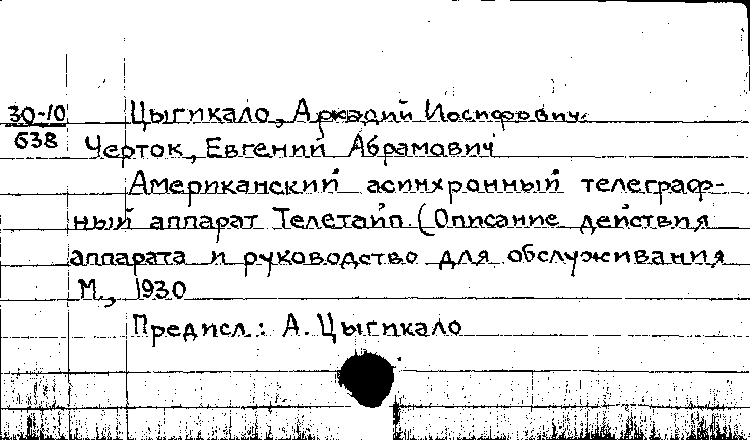 30-10 Цыгикало, Аркадий Иосифович.
638 Черток, Евгений Абрамович
Американский асинхронный телеграф-
ный аппарат Телетайп. (Описание действия
аппарата и руководство для обслуживания
М., 1930
Предисл.: А. Цыгикало